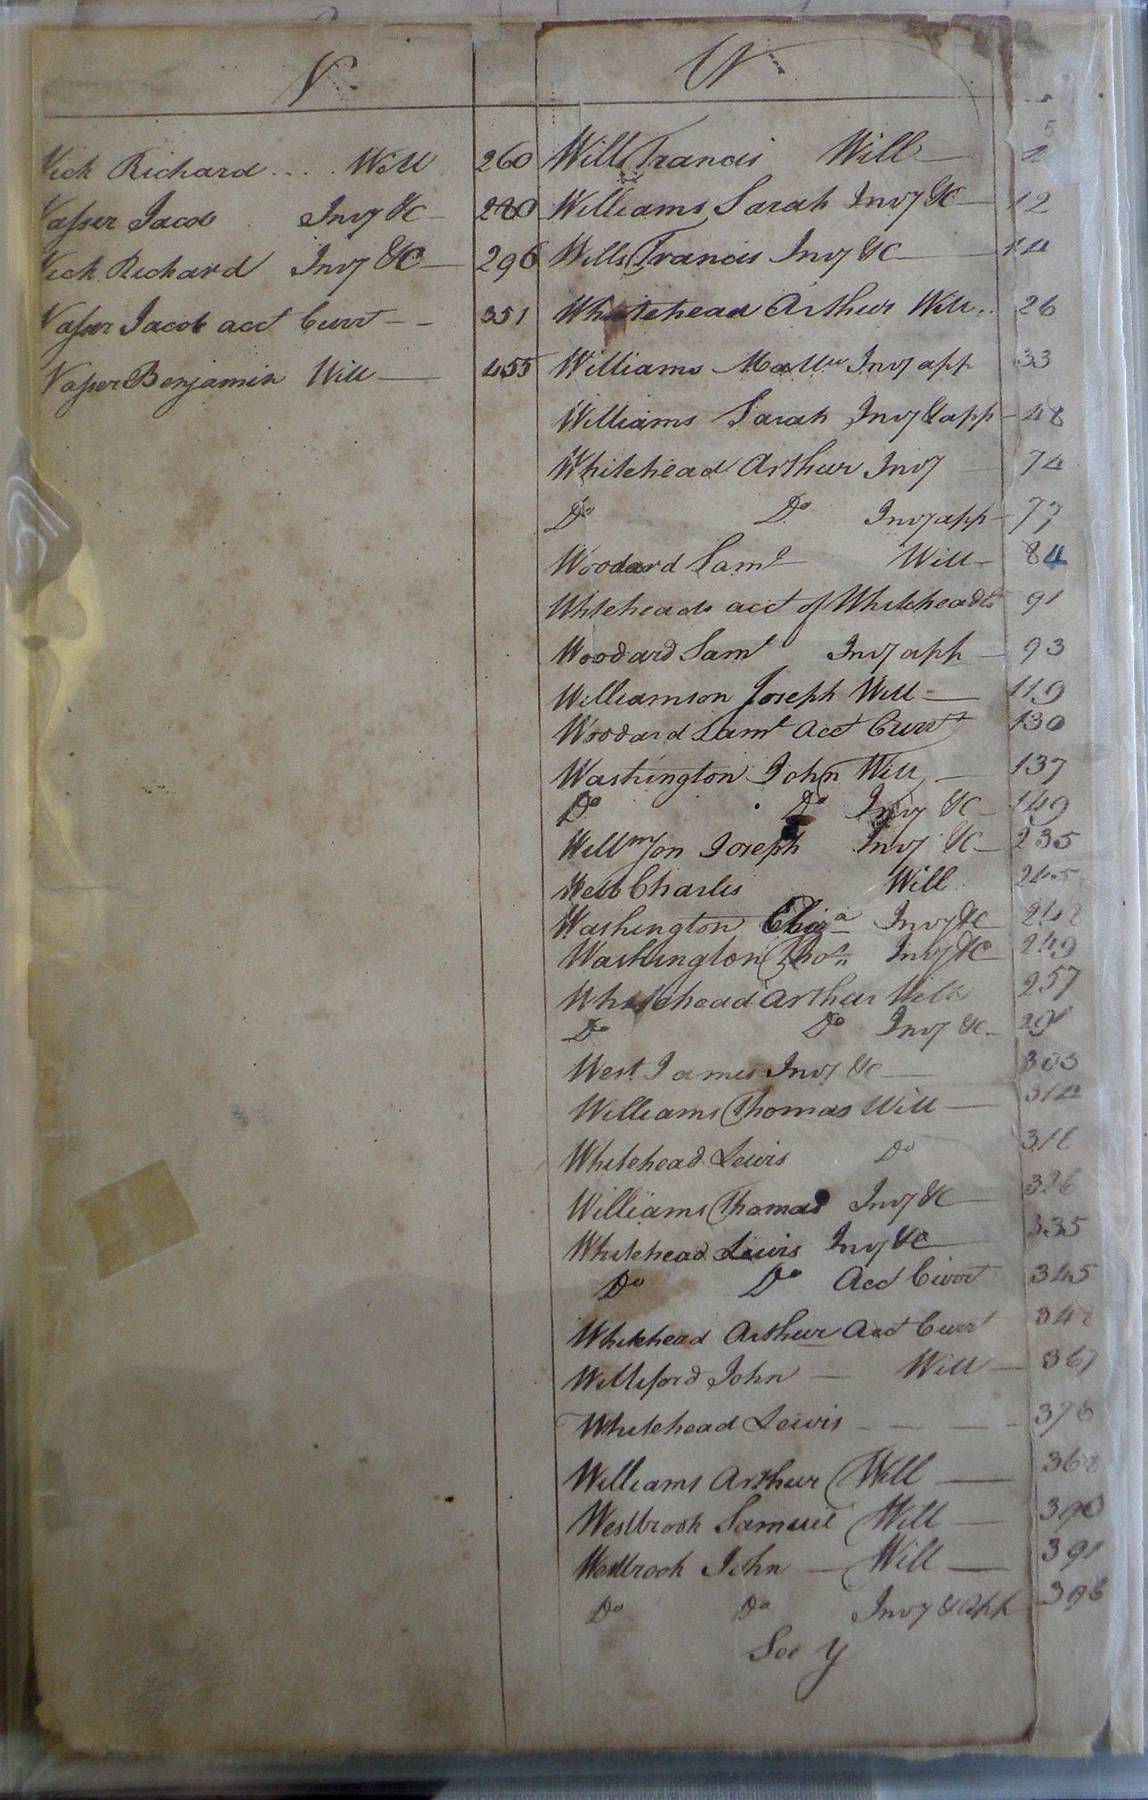 V.
Vick Richard .... Will 260
Vasser Jacob Invy &C 280
Vick Richard Invy &C 296
Vasser Jacob acct Currt 351
Vasser Benjamin Will 455
W.
Wills Francis Will
Williams Sarah Invy &C 12
Wills Francis Invy &C 14
Whitehead Arthur Will 26
Williams Invy app 33
Williams Sarah Invy & app 48
Whitehead Arthur Invy 74
Do Do Invy app 77
Woodard Saml Will 84
Whiteheads acct of Whitehead 91
Woodard Saml Invy app 93
Williamson Joseph Will 119
Woodard Saml Acct Currt 130
Washington John Will 137
Do Do Invy &C 149
Willmson Joseph Invy &C 235
Charles Will 245
Washington Eliza Invy &C 248
Washington Invy &C 249
Whitehead Arthur Will 257
Do Do Invy &C
West James Invy &C 303
Williams Thomas Will 314
Whitehead Lewis Do 318
Williams Thomas Invy &C 326
Whitehead Lewis Invy &C 335
Do Do Acct Currt 345
Whitehead Arthur Acct Currt 348
Williford John Will 367
Whitehead Lewis 376
Williams Arthur Will 368
Westbrook Samuel Will 390
Westbrook John Will 391
Do Do Invy & App 398
See Y